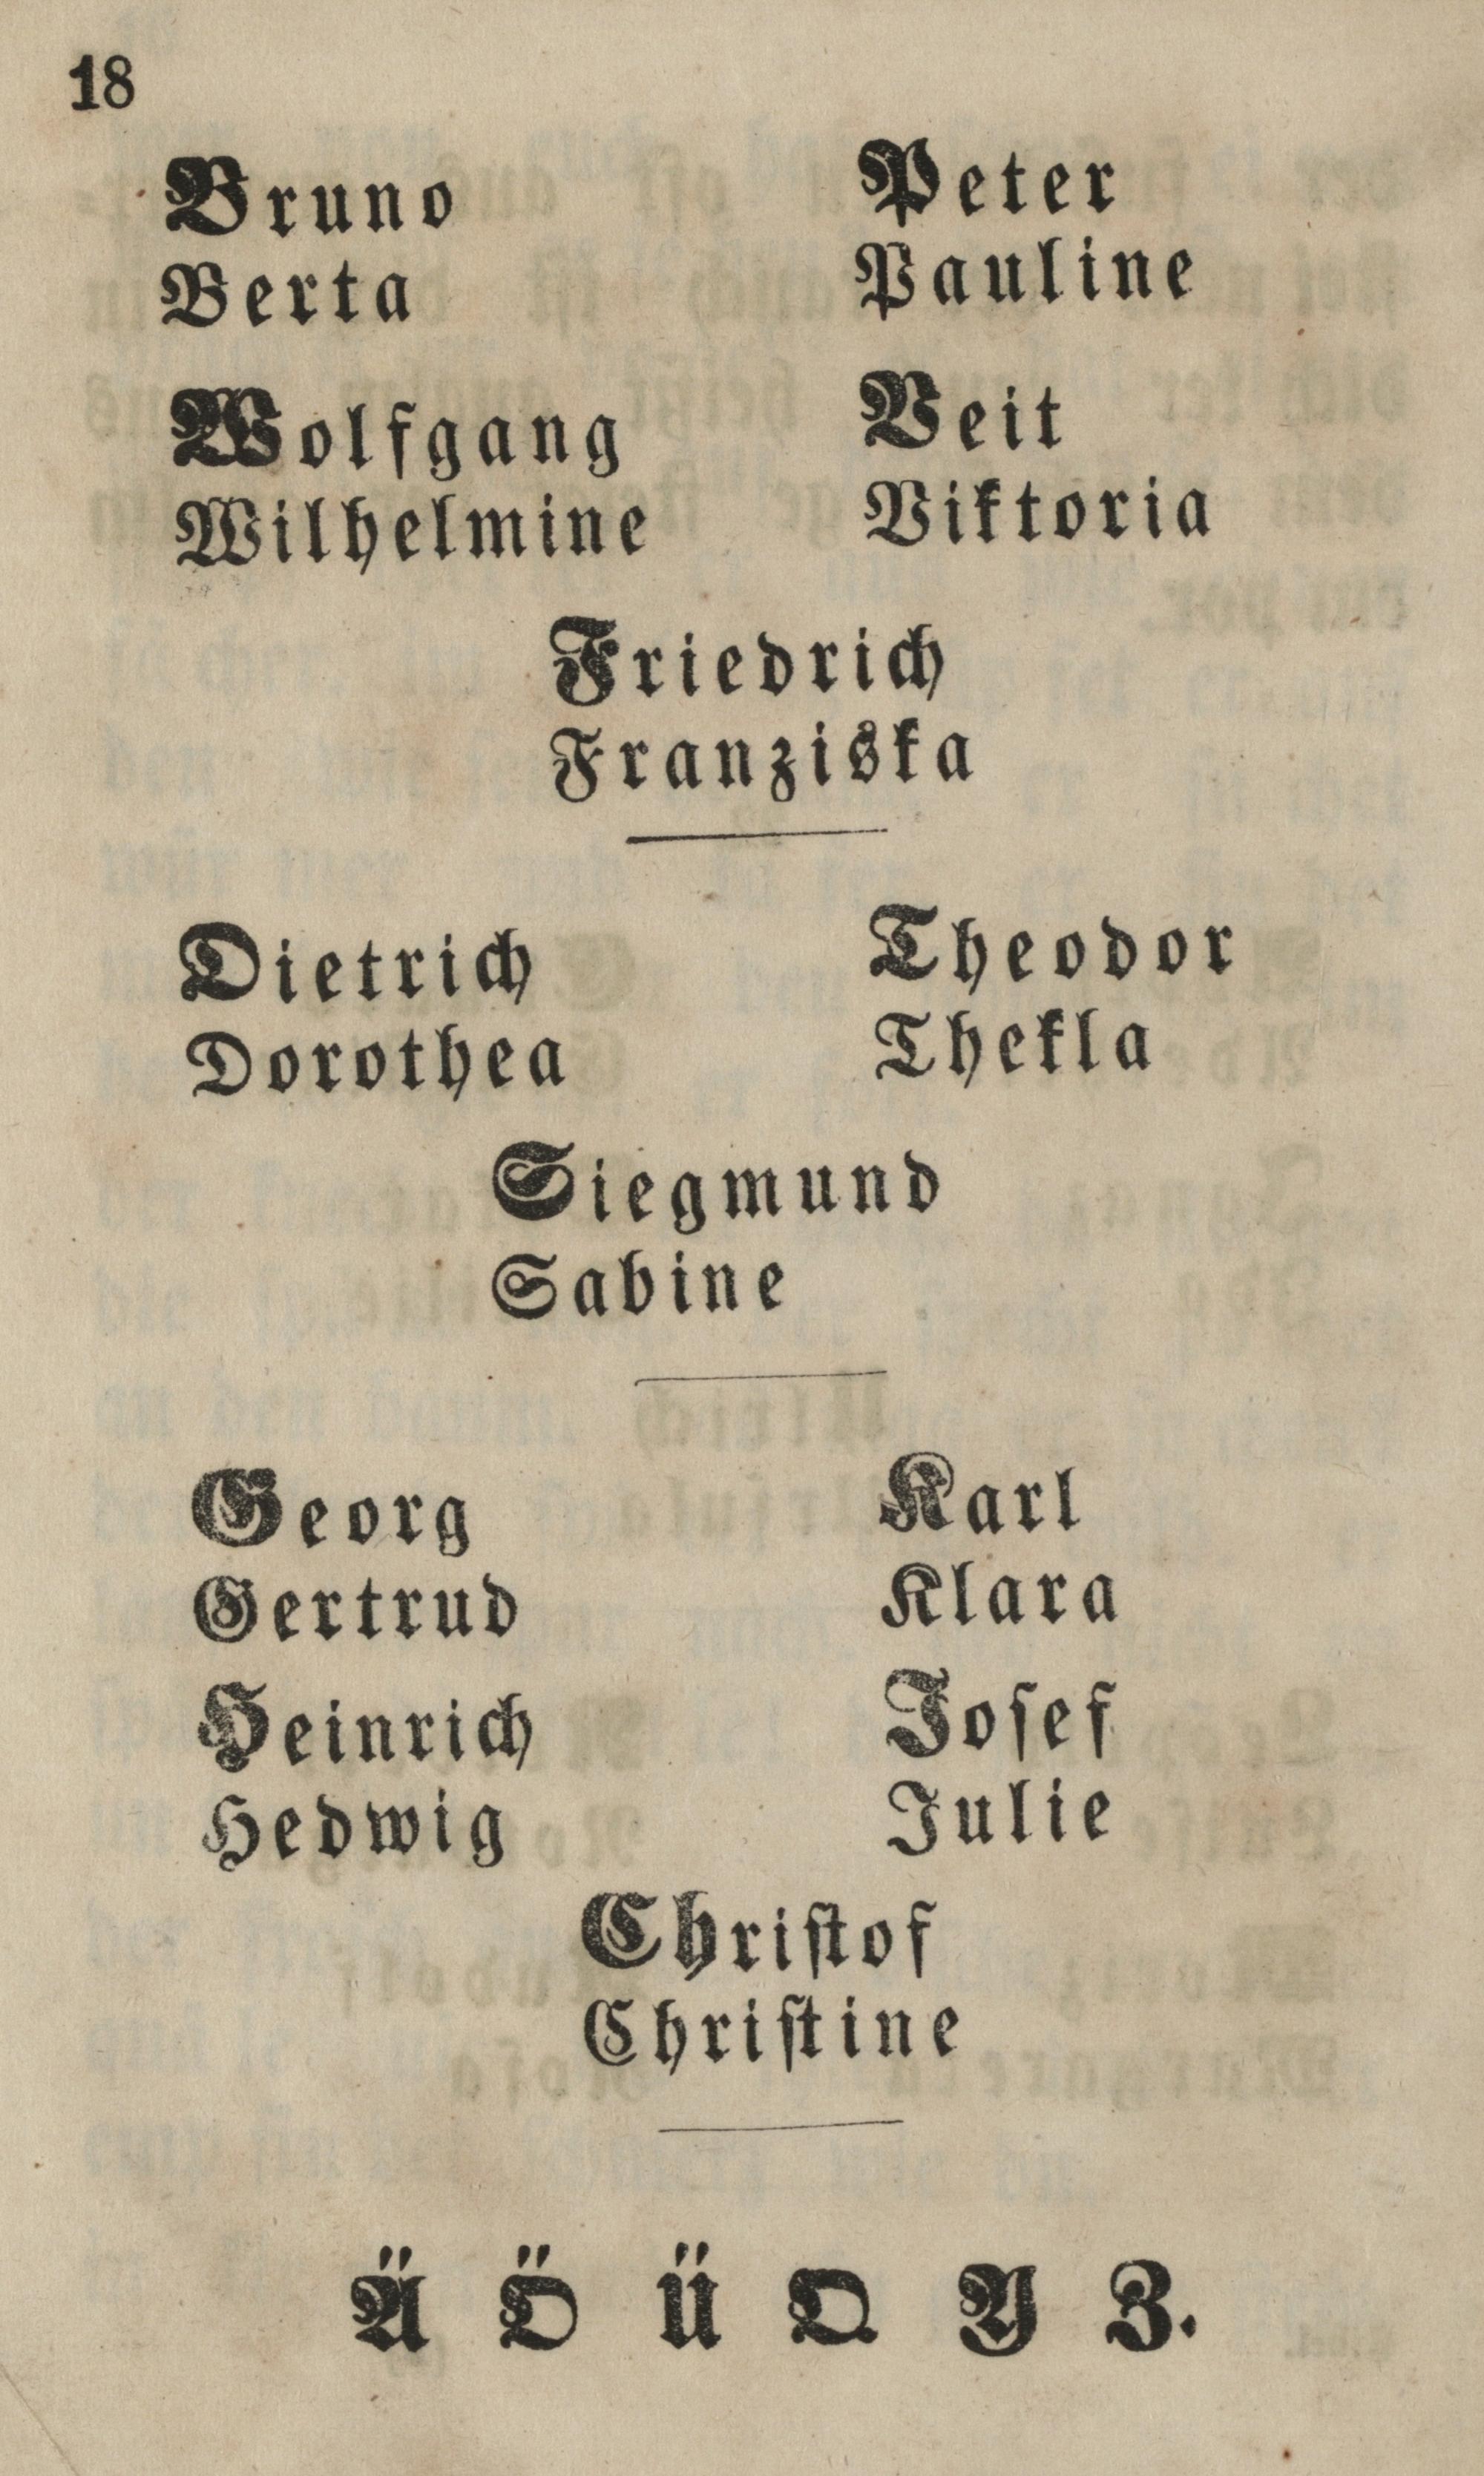 18
Bruno Peter
Berta Pauline
Wolfgang Veit
Wilhelmine Viktoria
Friedrich
Franziska
Dietrich Theodor
Dorothea Thekla
Siegmund
Sabine
Georg Karl
Gertrud Klara
Heinrich Joſef
Hedwig Julie
Chriſtof
Chriſtine
Ä Ö Ü Q Y Z.